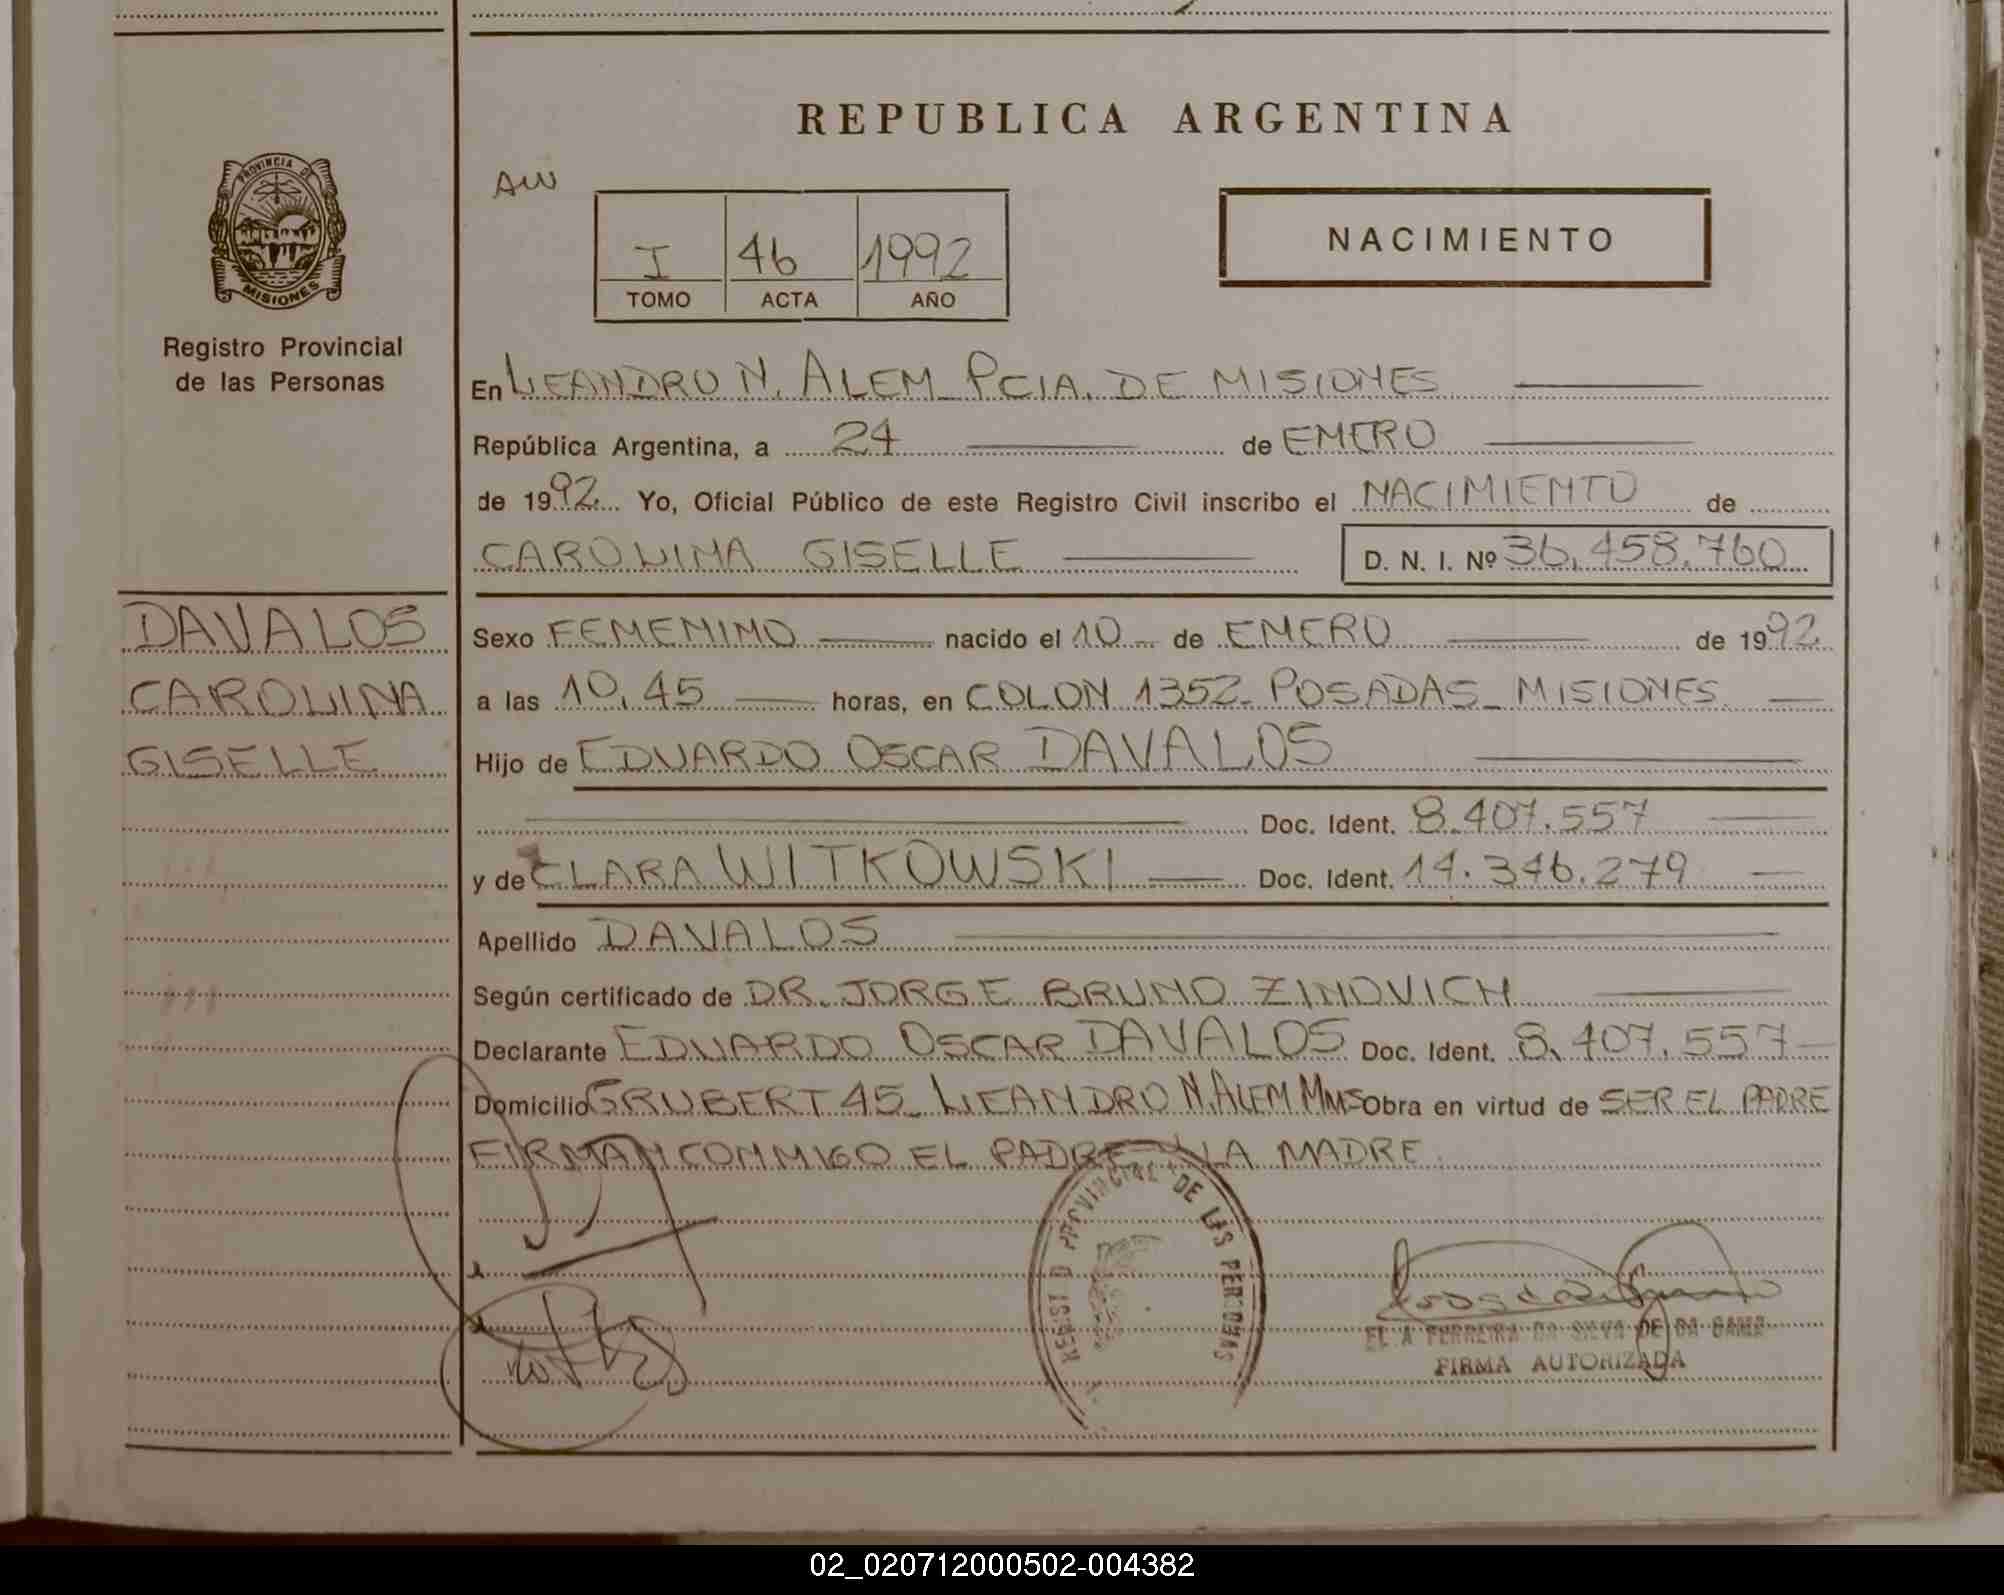 REPUBLICA ARGENTINA
AW
I 46 1992
TOMO ACTA AÑO
NACIMIENTO
PROVINCIA DE
MISIONES
Registro Provincial
de las Personas
En LEANDRO N. ALEM PCIA. DE MISIONES
República Argentina, a 24 de ENERO
de 1992 Yo, Oficial Público de este Registro Civil inscribo el NACIMIENTO de
CAROLINA GISELLE D. N. I. Nº 36.458.760
DAVALOS
CAROLINA
GISELLE
Sexo FEMENINO nacido el 10 de ENERO de 1992
a las 10,45 horas, en COLON 1352- POSADAS- MISIONES
Hijo de EDUARDO OSCAR DAVALOS
Doc. Ident. 8.407.557
y de CLARA WITKOWSKI Doc. Ident. 14.346.279
Apellido DAVALOS
Según certificado de DR. JORGE BRUNO ZINOVICH
Declarante EDUARDO OSCAR DAVALOS Doc. Ident. 8.407.557
Domicilio GRUBERT 45- LEANDRO N. ALEM Mnes Obra en virtud de SER EL PADRE
FIRMAN CONMIGO EL PADRE Y LA MADRE
REGISTRO PROVINCIAL DE LAS PERSONAS
FERREIRA DA SILVA DE DA GAMA
FIRMA AUTORIZADA
02_020712000502-004382